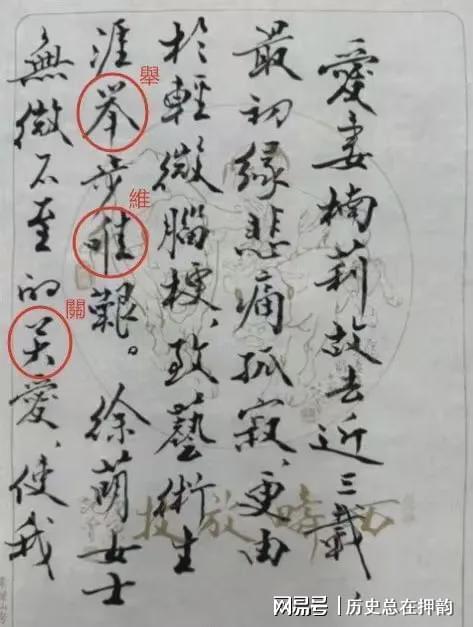 愛妻楠莉故去近三載，
最初緣悲痛孤寂，更由
於輕微腦梗，致藝術生
涯举步唯艱。徐萌女士
無微不至的关愛，使我
舉
維
關
网易号 | 历史总在押韵